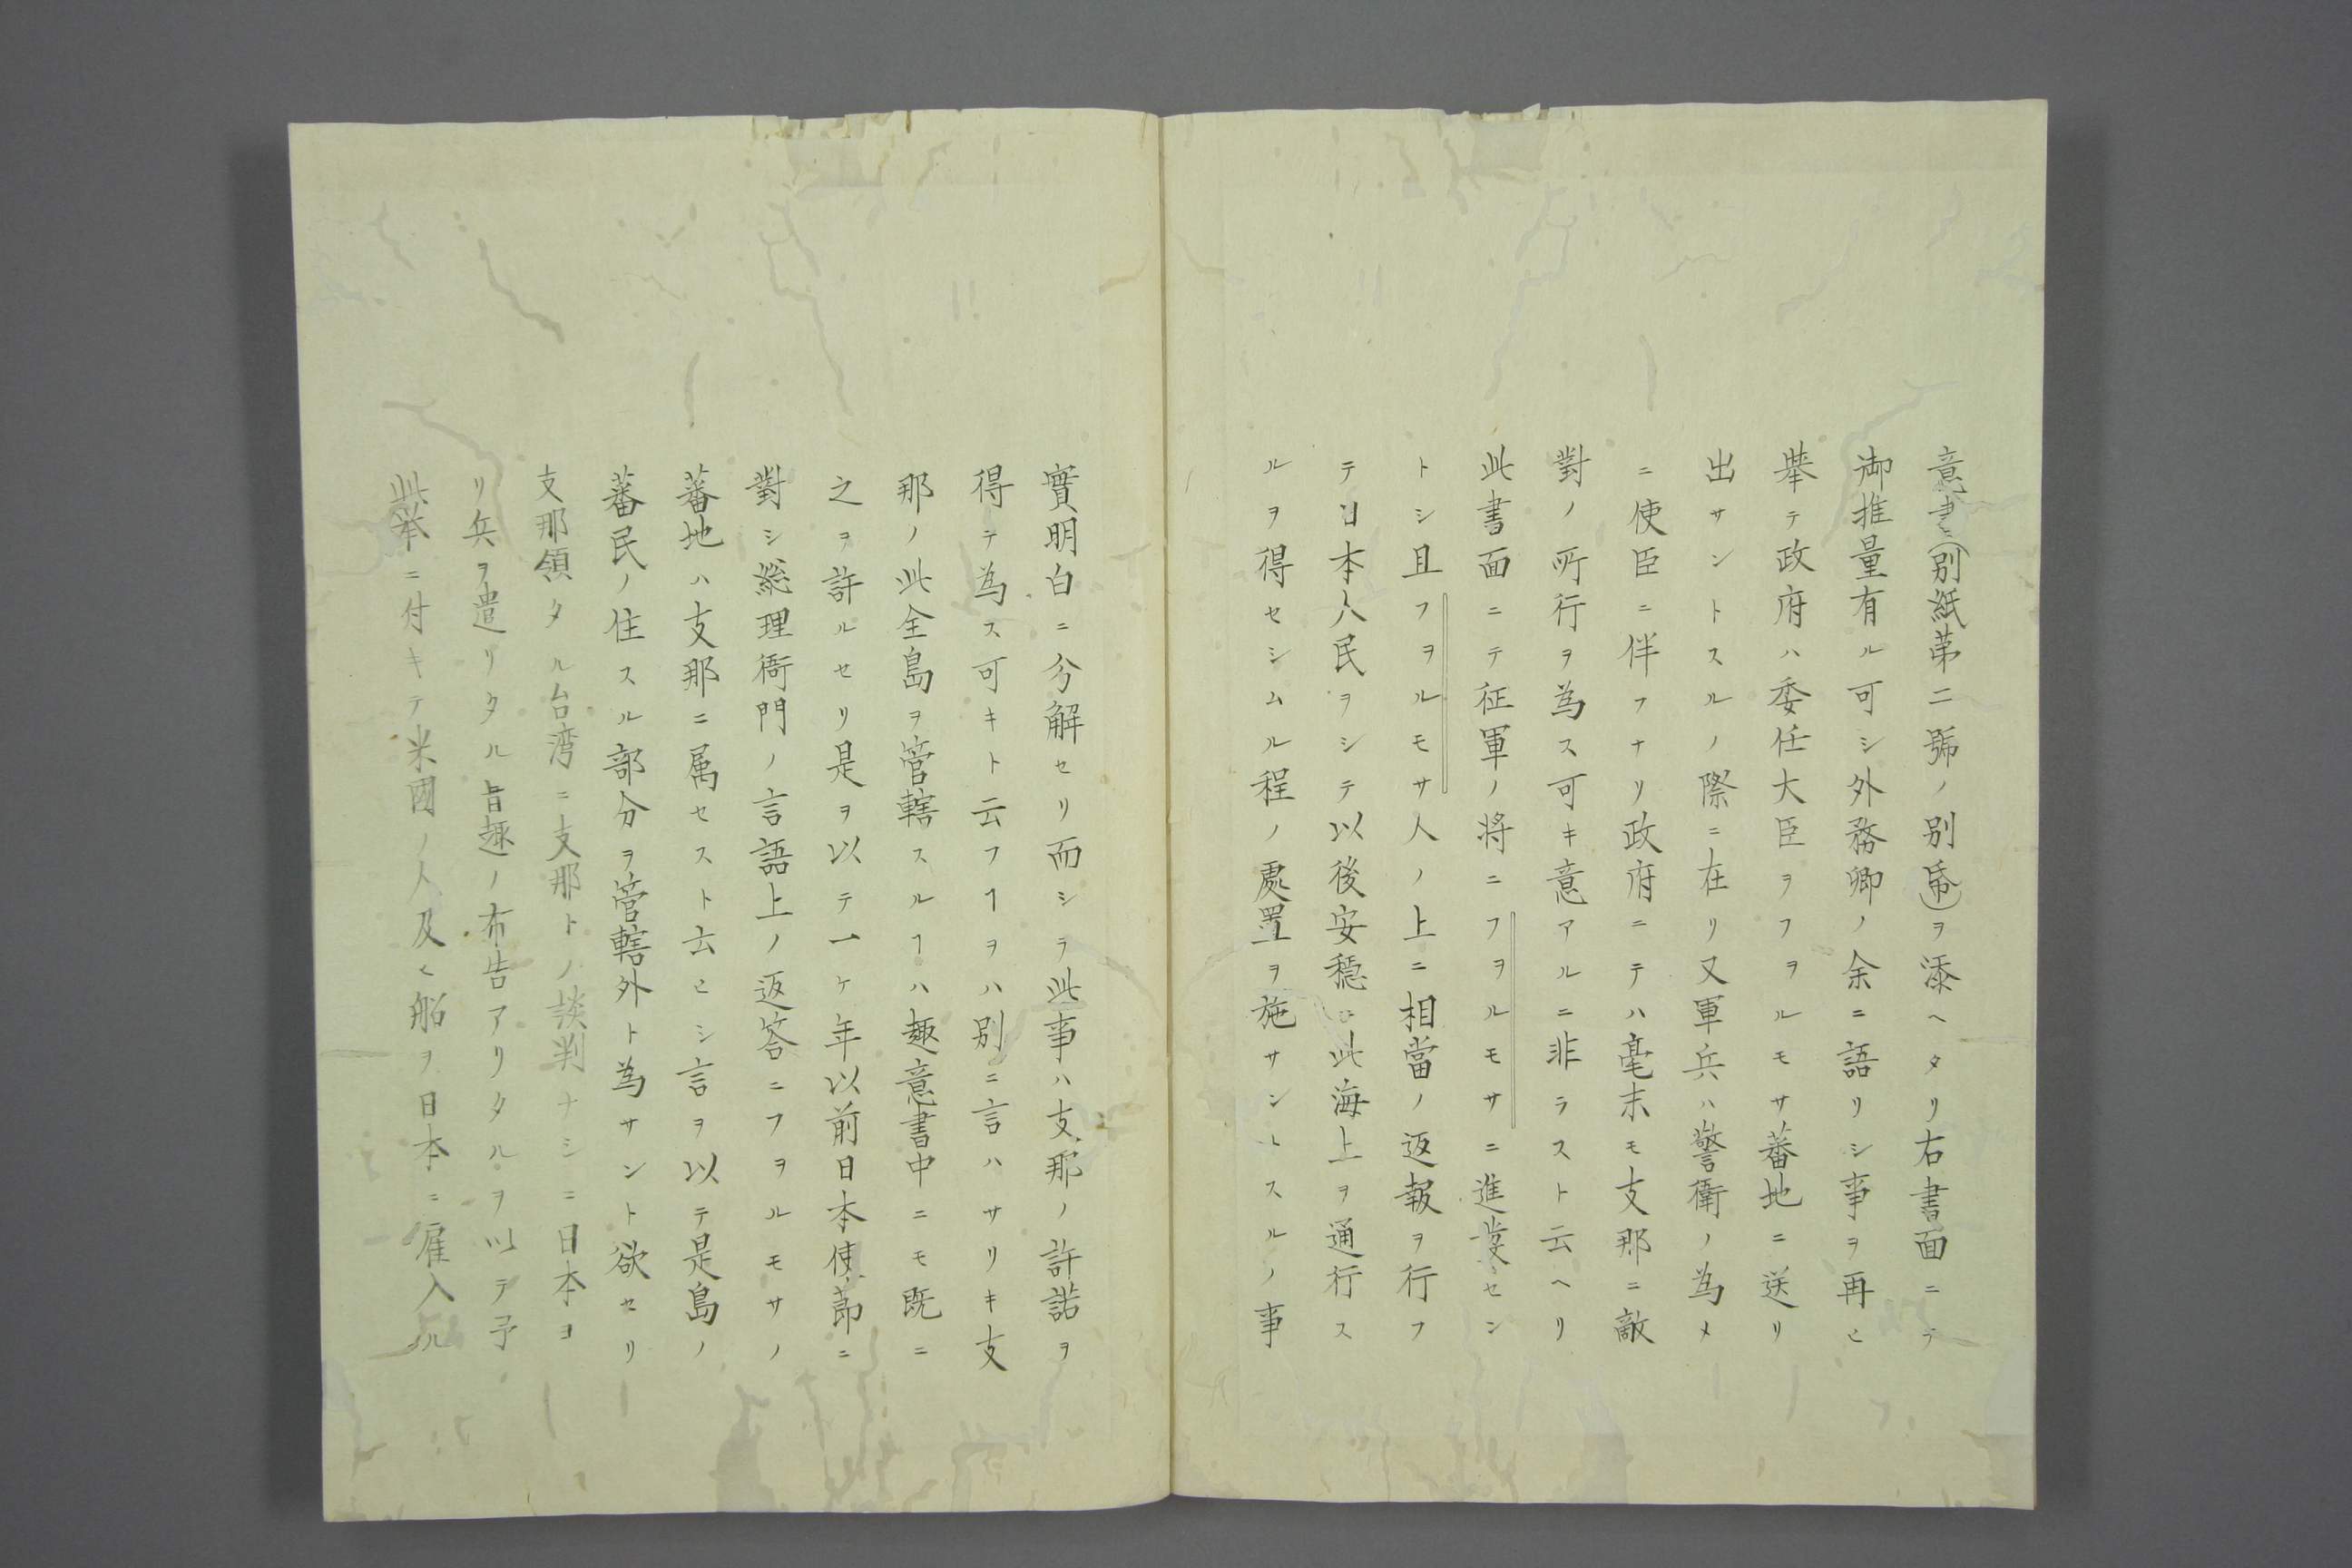 意書ニ(別紙第二號ノ別帋)ヲ添ヘタリ右書面ニテ
御推量有ル可シ外務卿ノ余ニ語リシ事ヲ再ヒ
挙テ政府ハ委任大臣ヲフヲルモサ蕃地ニ送リ
出サントスルノ際ニ在リ又軍兵ハ警衛ノ為メ
ニ使臣ニ伴フナリ政府ニテハ毫末モ支那ニ敵
對ノ所行ヲ為ス可キ意アルニ非ラスト云ヘリ
此書面ニテ征軍ノ将ニフヲルモサニ進発セン
トシ且フヲルモサ人ノ上ニ相當ノ返報ヲ行フ
テ日本人民ヲシテ以後安穏ニ此海上ヲ通行ス
ルヲ得セシムル程ノ處置ヲ施サントスルノ事
實明白ニ分解セリ而シテ此事ハ支那ノ許諾ヲ
得テ為ス可キト云フヿヲハ別ニ言ハサリキ支
那ノ此全島ヲ管轄スルヿハ趣意書中ニモ既ニ
之ヲ許ルセリ是ヲ以テ一ケ年以前日本使節ニ
對シ総理衙門ノ言語上ノ返答ニフヲルモサノ
蕃地ハ支那ニ属セスト云ヒシ言ヲ以テ是島ノ
蕃民ノ住スル部分ヲ管轄外ト為サント欲セリ
支那領タル台湾ニ支那トノ談判ナシニ日本ヨ
リ兵ヲ遣リタル旨趣ノ布告アリタルヲ以テ予
此挙ニ付キテ米國ノ人及ヒ船ヲ日本ニ雇入ル